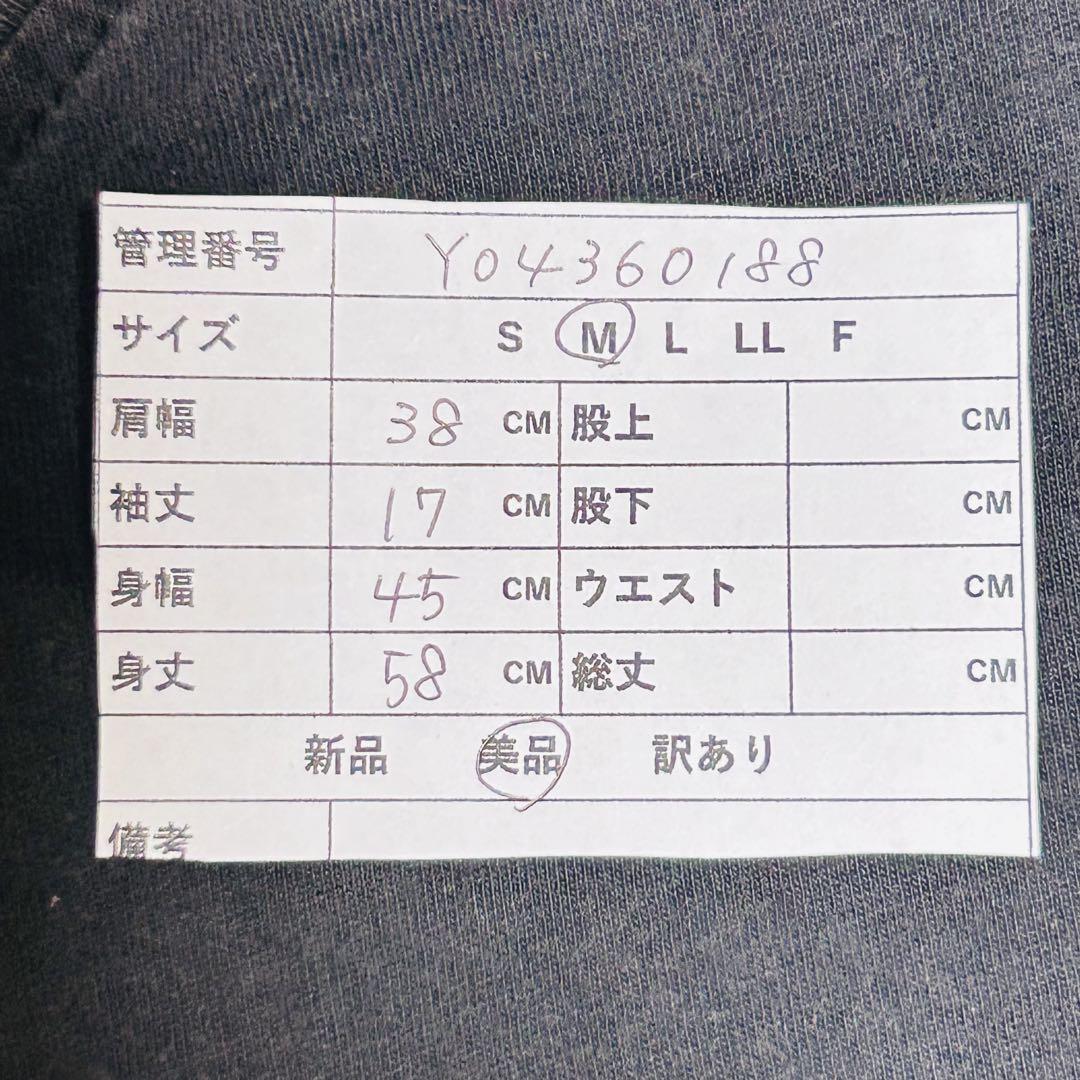 管理番号 Y04360188
サイズ S M L LL F
肩幅 38 CM 股上 CM
袖丈 17 CM 股下 CM
身幅 45 CM ウエスト CM
身丈 58 CM 総丈 CM
新品 美品 訳あり
備考